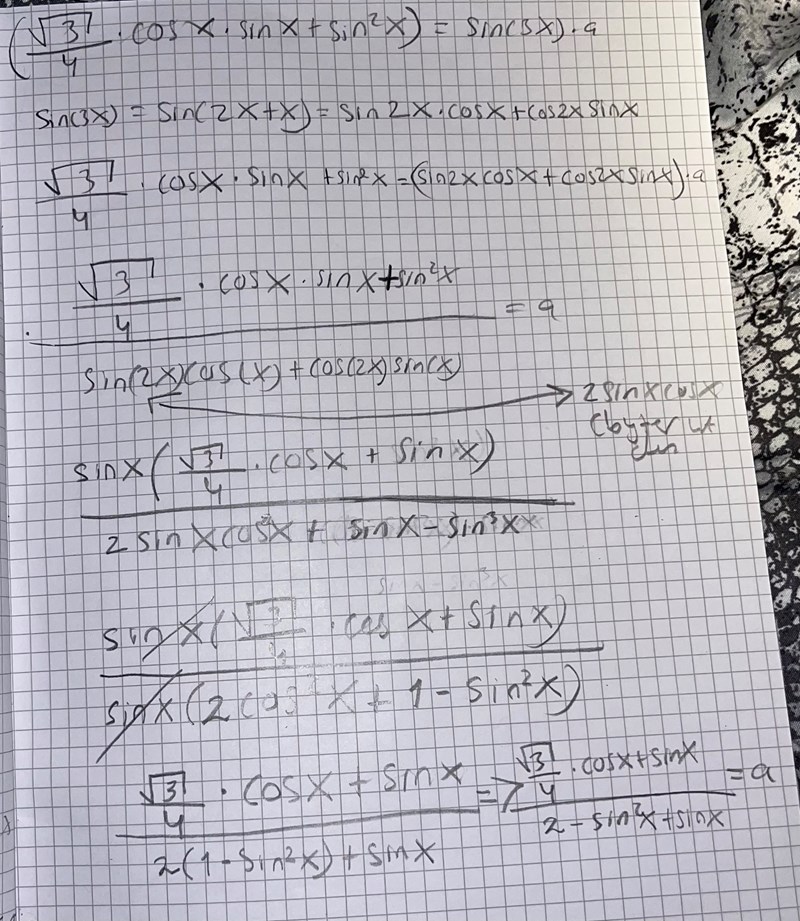 (√3/4 · cos x · sin x + sin²x) = sin(3x) · a
sin(3x) = sin(2x+x) = sin 2x · cos x + cos 2x sin x
√3/4 · cos x · sin x + sin²x = (sin 2x cos x + cos 2x sin x) · a
(√3/4 · cos x · sin x + sin²x) / (sin(2x) cos(x) + cos(2x) sin(x)) = a
→ 2 sin x cos x
sin x (√3/4 · cos x + sin x) / (2 sin x cos²x + sin x - sin³x)
sin x (√3/4 · cos x + sin x) / (sin x (2 cos²x + 1 - sin²x))
(√3/4 · cos x + sin x) / (2(1 - sin²x) + sin x) => (√3/4 · cos x + sin x) / (2 - sin²x + sin x) = a